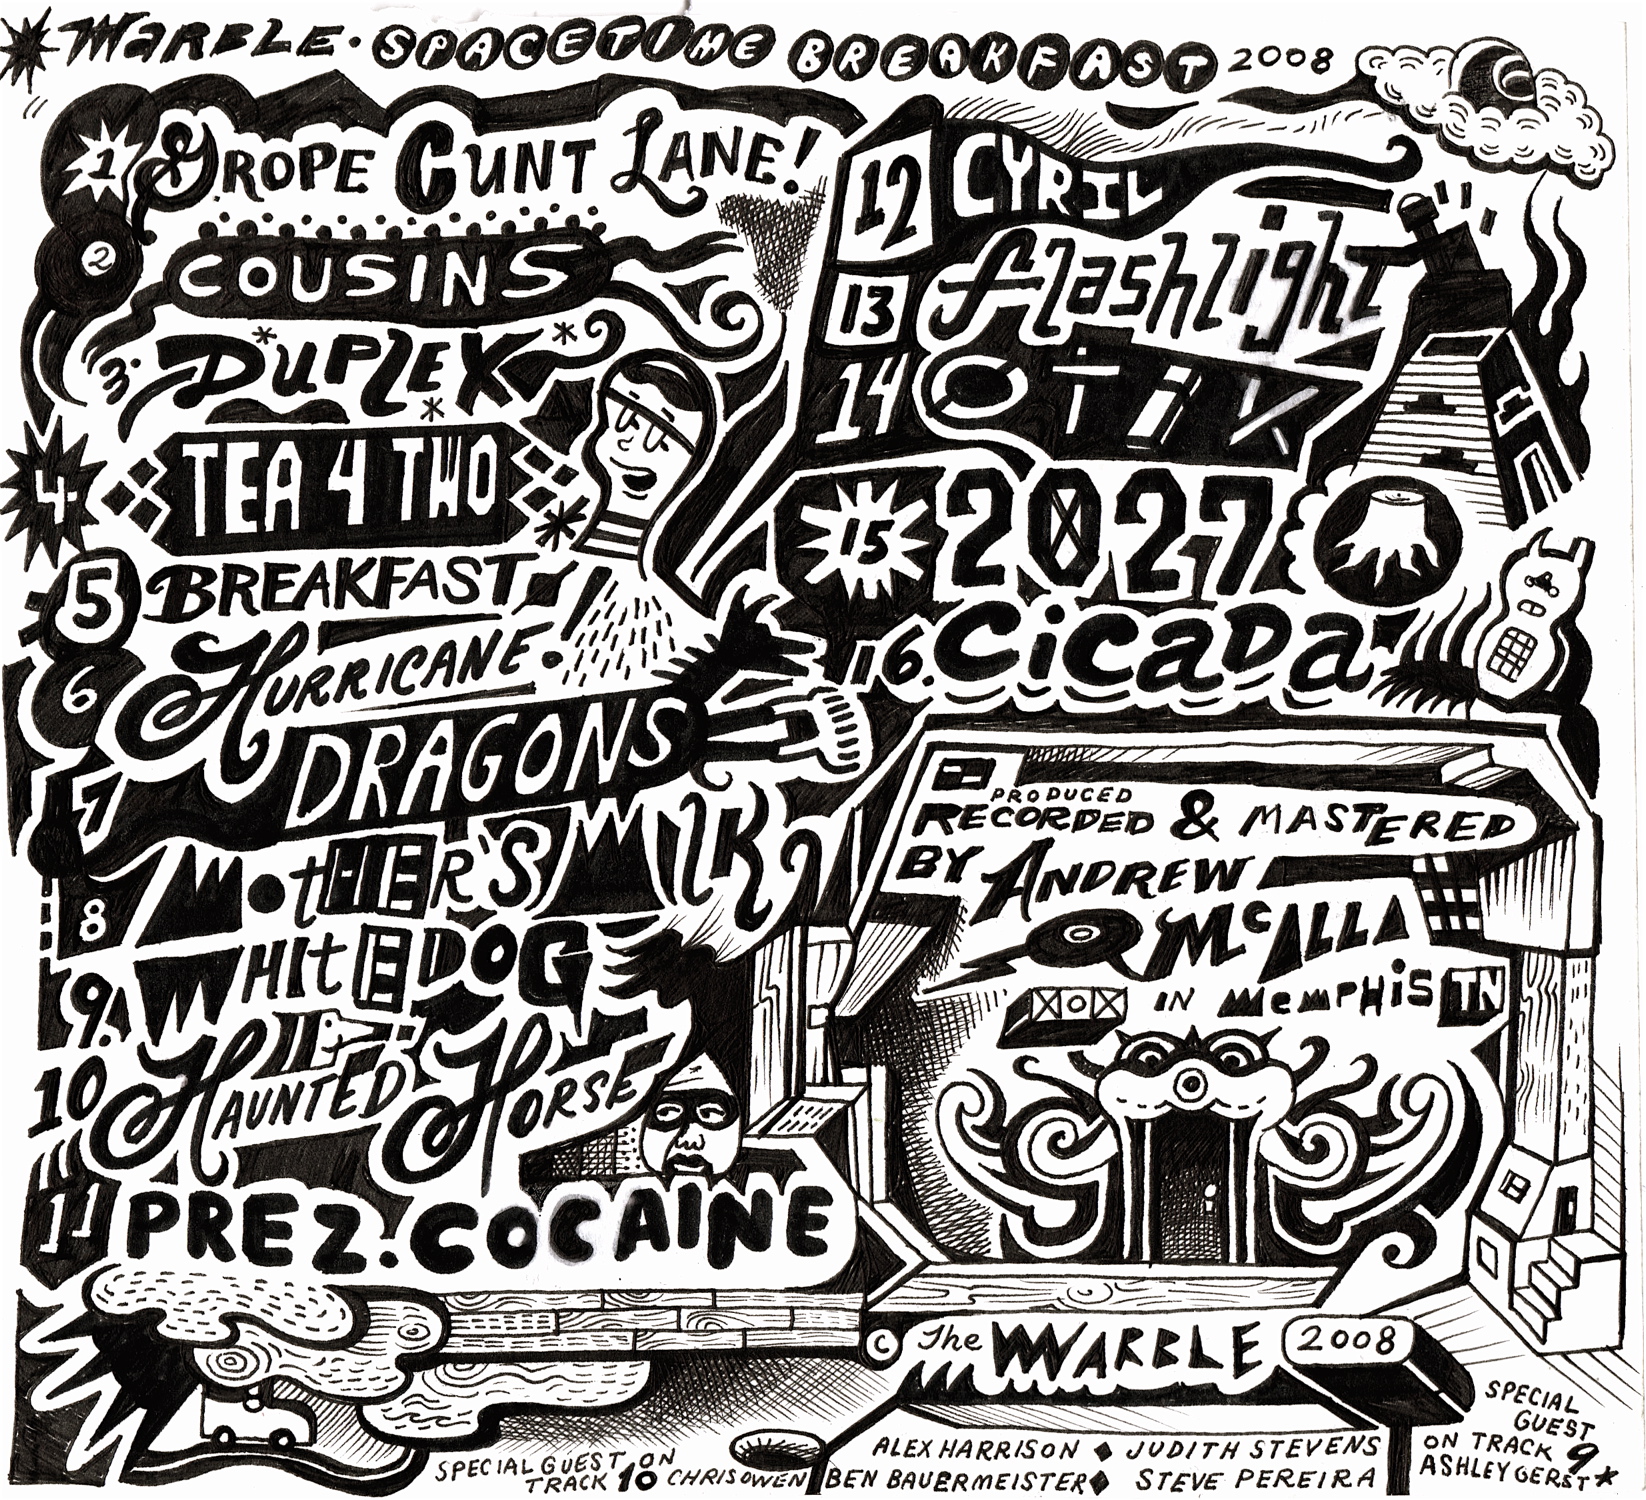 WARBLE · SPACETIME BREAKFAST 2008
1 GROPE CUNT LANE!
2 COUSINS
3. DUPLEX
4. TEA 4 TWO
5 BREAKFAST
6 HURRICANE
7 DRAGONS
8 MOTHER'S MILK
9. WHITE DOG
10 HAUNTED HORSE
11 PREZ. COCAINE
12 CYRIL
13 flashlight
14 OTIK
15 2027
16. CICADA
PRODUCED
RECORDED & MASTERED
BY ANDREW
McALLA
IN MEMPHIS TN
© The WARBLE 2008
SPECIAL GUEST ON
TRACK 10 CHRIS OWEN
ALEX HARRISON ♦ JUDITH STEVENS
BEN BAUERMEISTER ♦ STEVE PEREIRA
SPECIAL
GUEST
ON TRACK 9
ASHLEY GERST *